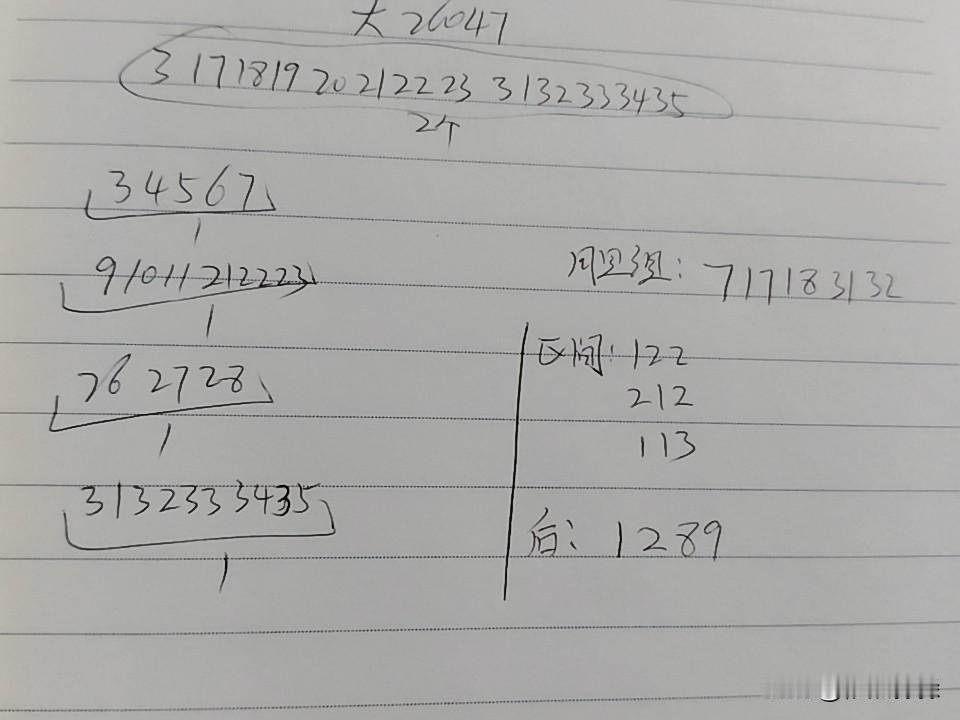 大26047
3 17 18 19 20 21 22 23 31 32 33 34 35
2个
3 4 5 6 7
1
9 10 11 21 22 23
1
26 27 28
1
31 32 33 34 35
1
: 7 17 18 31 32
区间: 122
212
113
后: 1 2 8 9